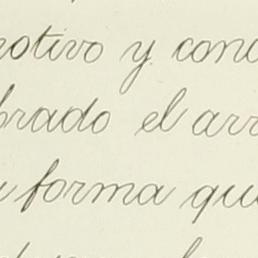 motivo y cond
brado el arr
forma que